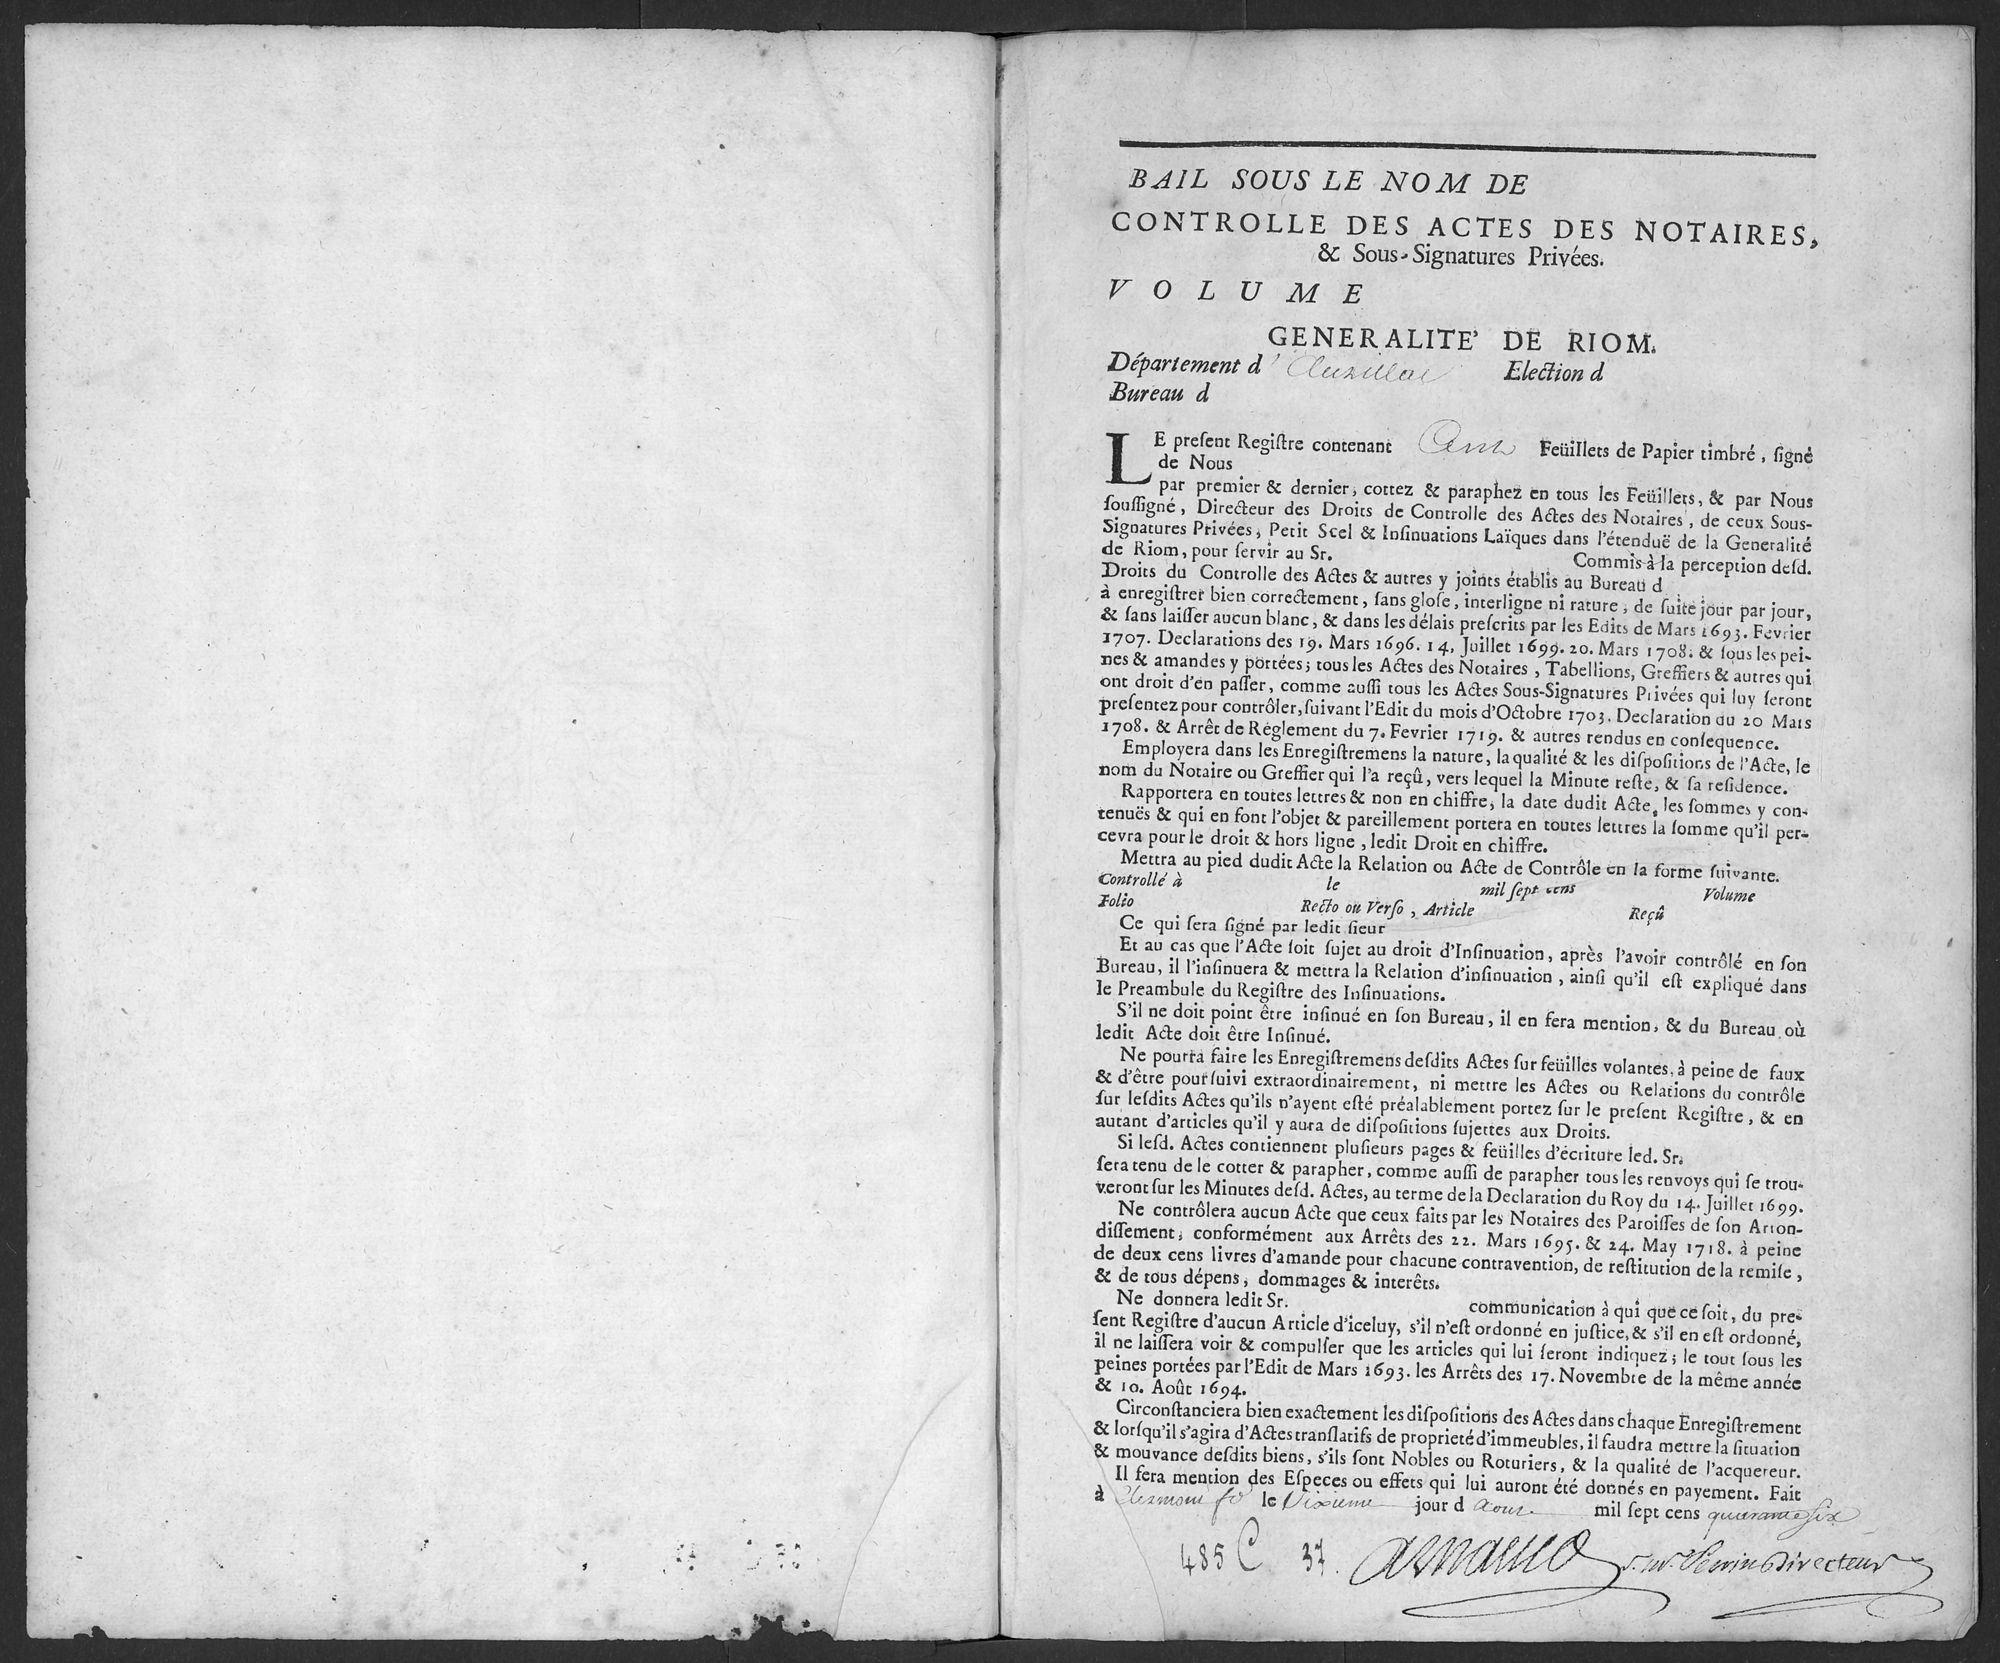 BAIL SOUS LE NOM DE
CONTROLLE DES ACTES DES NOTAIRES,
& Sous-Signatures Privées.
VOLUME
GENERALITE' DE RIOM.
Département d' Aurillac Election d
Bureau d
LE preſent Regiſtre contenant Cent Feüillets de Papier timbré, ſigné
de Nous
par premier & dernier, cottez & paraphez en tous les Feüillets, & par Nous
ſouſſigné, Directeur des Droits de Controlle des Actes des Notaires, de ceux Sous-
Signatures Privées, Petit Scel & Inſinuations Laïques dans l'étenduë de la Generalité
de Riom, pour ſervir au Sr. Commis à la perception deſd.
Droits du Controlle des Actes & autres y joints établis au Bureau d
à enregiſtrer bien correctement, ſans gloſe, interligne ni rature, de ſuite jour par jour,
& ſans laiſſer aucun blanc, & dans les délais preſcrits par les Edits de Mars 1693. Fevrier
1707. Declarations des 19. Mars 1696. 14. Juillet 1699. 20. Mars 1708. & ſous les pei-
nes & amandes y portées; tous les Actes des Notaires, Tabellions, Greffiers & autres qui
ont droit d'en paſſer, comme auſſi tous les Actes Sous-Signatures Privées qui luy ſeront
preſentez pour contrôler, ſuivant l'Edit du mois d'Octobre 1703. Declaration du 20 Mars
1708. & Arrêt de Réglement du 7. Fevrier 1719. & autres rendus en conſequence.
Employera dans les Enregiſtremens la nature, la qualité & les diſpoſitions de l'Acte, le
nom du Notaire ou Greffier qui l'a reçû, vers lequel la Minute reſte, & ſa reſidence.
Rapportera en toutes lettres & non en chiffre, la date dudit Acte, les ſommes y con-
tenuës & qui en font l'objet & pareillement portera en toutes lettres la ſomme qu'il per-
cevra pour le droit & hors ligne, ledit Droit en chiffre.
Mettra au pied dudit Acte la Relation ou Acte de Contrôle en la forme ſuivante.
Controllé à le mil ſept cens Volume
Folio Recto ou Verſo, Article Reçû
Ce qui ſera ſigné par ledit ſieur
Et au cas que l'Acte ſoit ſujet au droit d'Inſinuation, après l'avoir contrôlé en ſon
Bureau, il l'inſinuera & mettra la Relation d'inſinuation, ainſi qu'il eſt expliqué dans
le Preambule du Regiſtre des Inſinuations.
S'il ne doit point être inſinué en ſon Bureau, il en fera mention, & du Bureau où
ledit Acte doit être Inſinué.
Ne pourra faire les Enregiſtremens deſdits Actes ſur feüilles volantes, à peine de faux
& d'être pourſuivi extraordinairement, ni mettre les Actes ou Relations du contrôle
ſur leſdits Actes qu'ils n'ayent eſté préalablement portez ſur le preſent Regiſtre, & en
autant d'articles qu'il y aura de diſpoſitions ſujettes aux Droits.
Si leſd. Actes contiennent pluſieurs pages & feüilles d'écriture led. Sr.
ſera tenu de le cotter & parapher, comme auſſi de parapher tous les renvoys qui ſe trou-
veront ſur les Minutes deſd. Actes, au terme de la Declaration du Roy du 14. Juillet 1699.
Ne contrôlera aucun Acte que ceux faits par les Notaires des Paroiſſes de ſon Arron-
diſſement, conformément aux Arrêts des 22. Mars 1695. & 24. May 1718. à peine
de deux cens livres d'amande pour chacune contravention, de reſtitution de la remiſe,
& de tous dépens, dommages & interêts.
Ne donnera ledit Sr. communication à qui que ce ſoit, du pre-
ſent Regiſtre d'aucun Article d'iceluy, s'il n'eſt ordonné en juſtice, & s'il en eſt ordonné,
il ne laiſſera voir & compulſer que les articles qui lui ſeront indiquez; le tout ſous les
peines portées par l'Edit de Mars 1693. les Arrêts des 17. Novembre de la même année
& 10. Août 1694.
Circonſtanciera bien exactement les diſpoſitions des Actes dans chaque Enregiſtrement
& lorſqu'il s'agira d'Actes tranſlatifs de proprieté d'immeubles, il faudra mettre la ſituation
& mouvance deſdits biens, s'ils ſont Nobles ou Roturiers, & la qualité de l'acquereur.
Il fera mention des Eſpeces ou effets qui lui auront été donnés en payement. Fait
à Clermont fd le Dixieme jour d aout mil ſept cens quarante six
485 C 37. Directeur